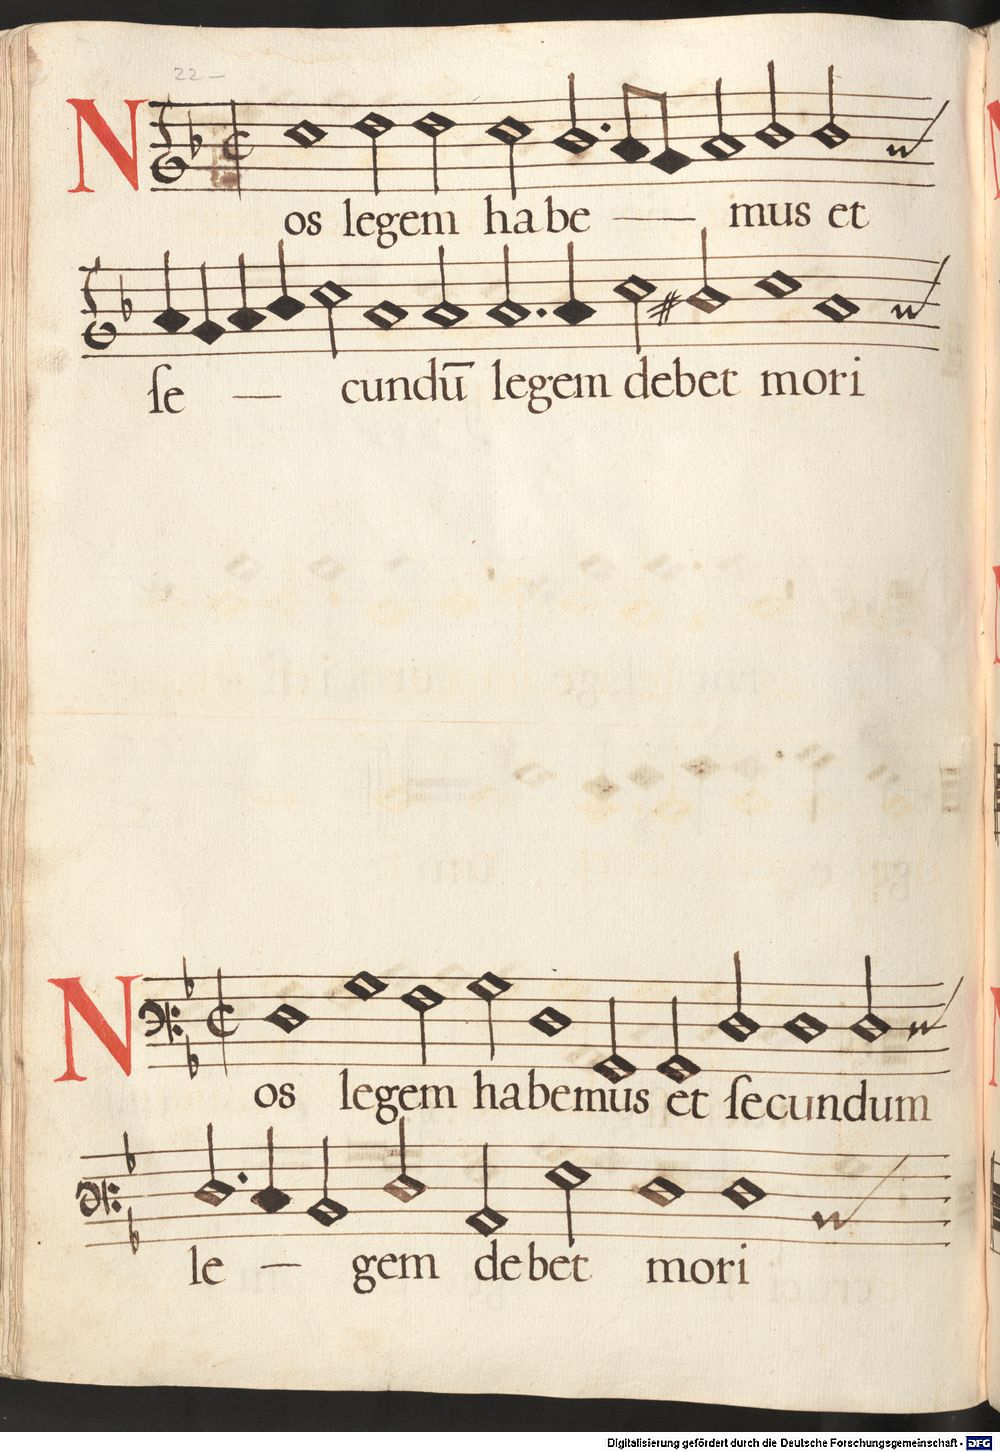 22
Nos legem habe — mus et
ſe — cundū legem debet mori
Nos legem habemus et ſecundum
le — gem debet mori
Digitalisierung gefördert durch die Deutsche Forschungsgemeinschaft - DFG